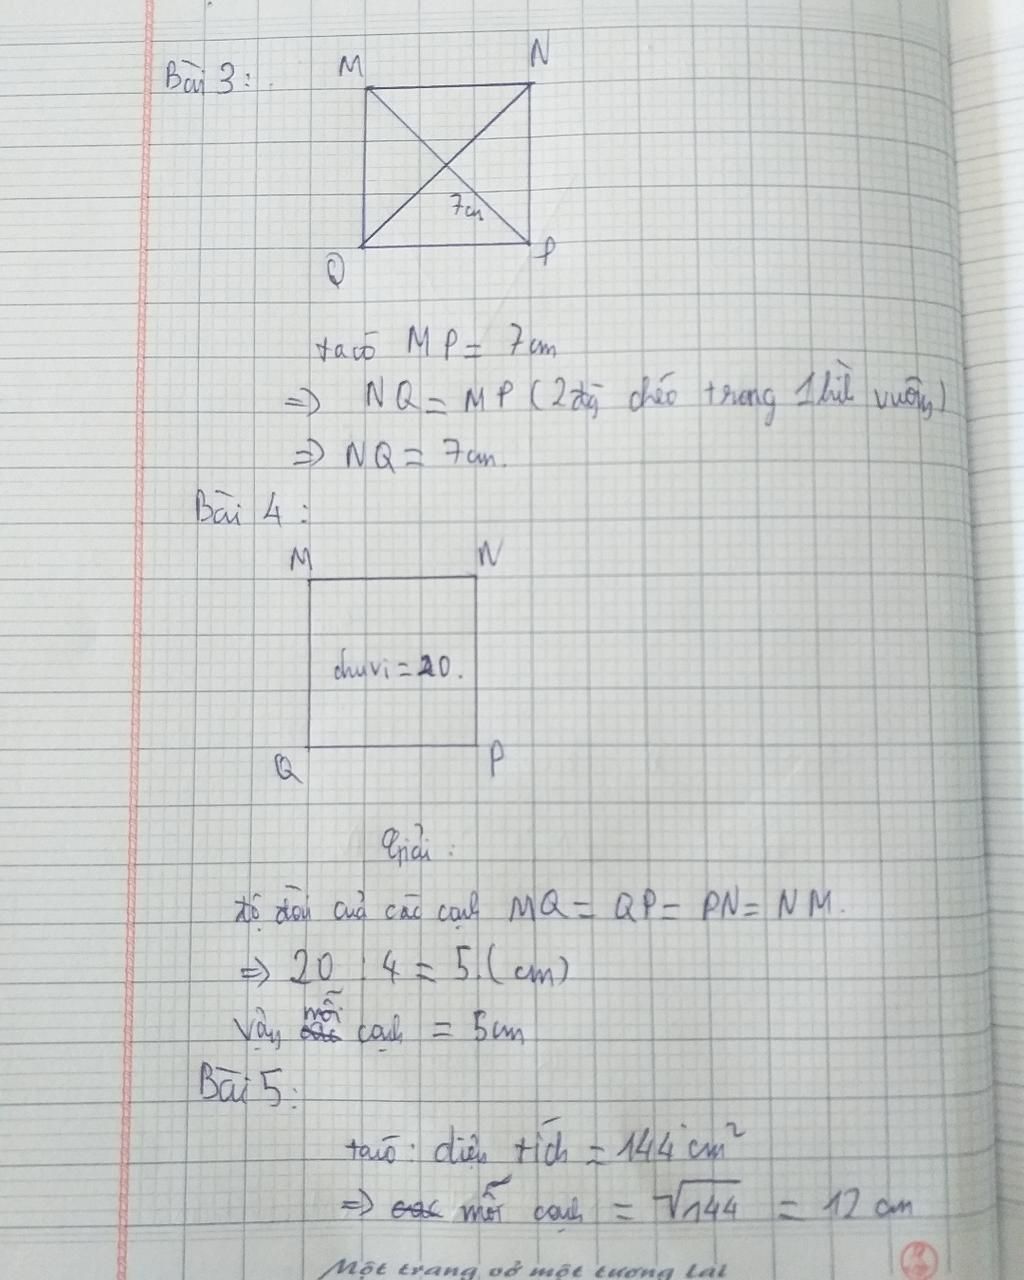 Bài 3:
M N
7cm
Q P
ta có MP = 7cm
=> NQ = MP (2 đg chéo trong 1 hìh vuông)
=> NQ = 7cm.
Bài 4:
M N
chu vi = 20.
Q P
Giải:
độ dài của các cạnh MQ = QP = PN = NM.
=> 20 : 4 = 5 (cm)
vậy mỗi cạnh = 5cm
Bài 5:
ta có: diện tích = 144 cm²
=> các mỗi cạnh = √144 = 12 cm
Một trang vở một tương lai